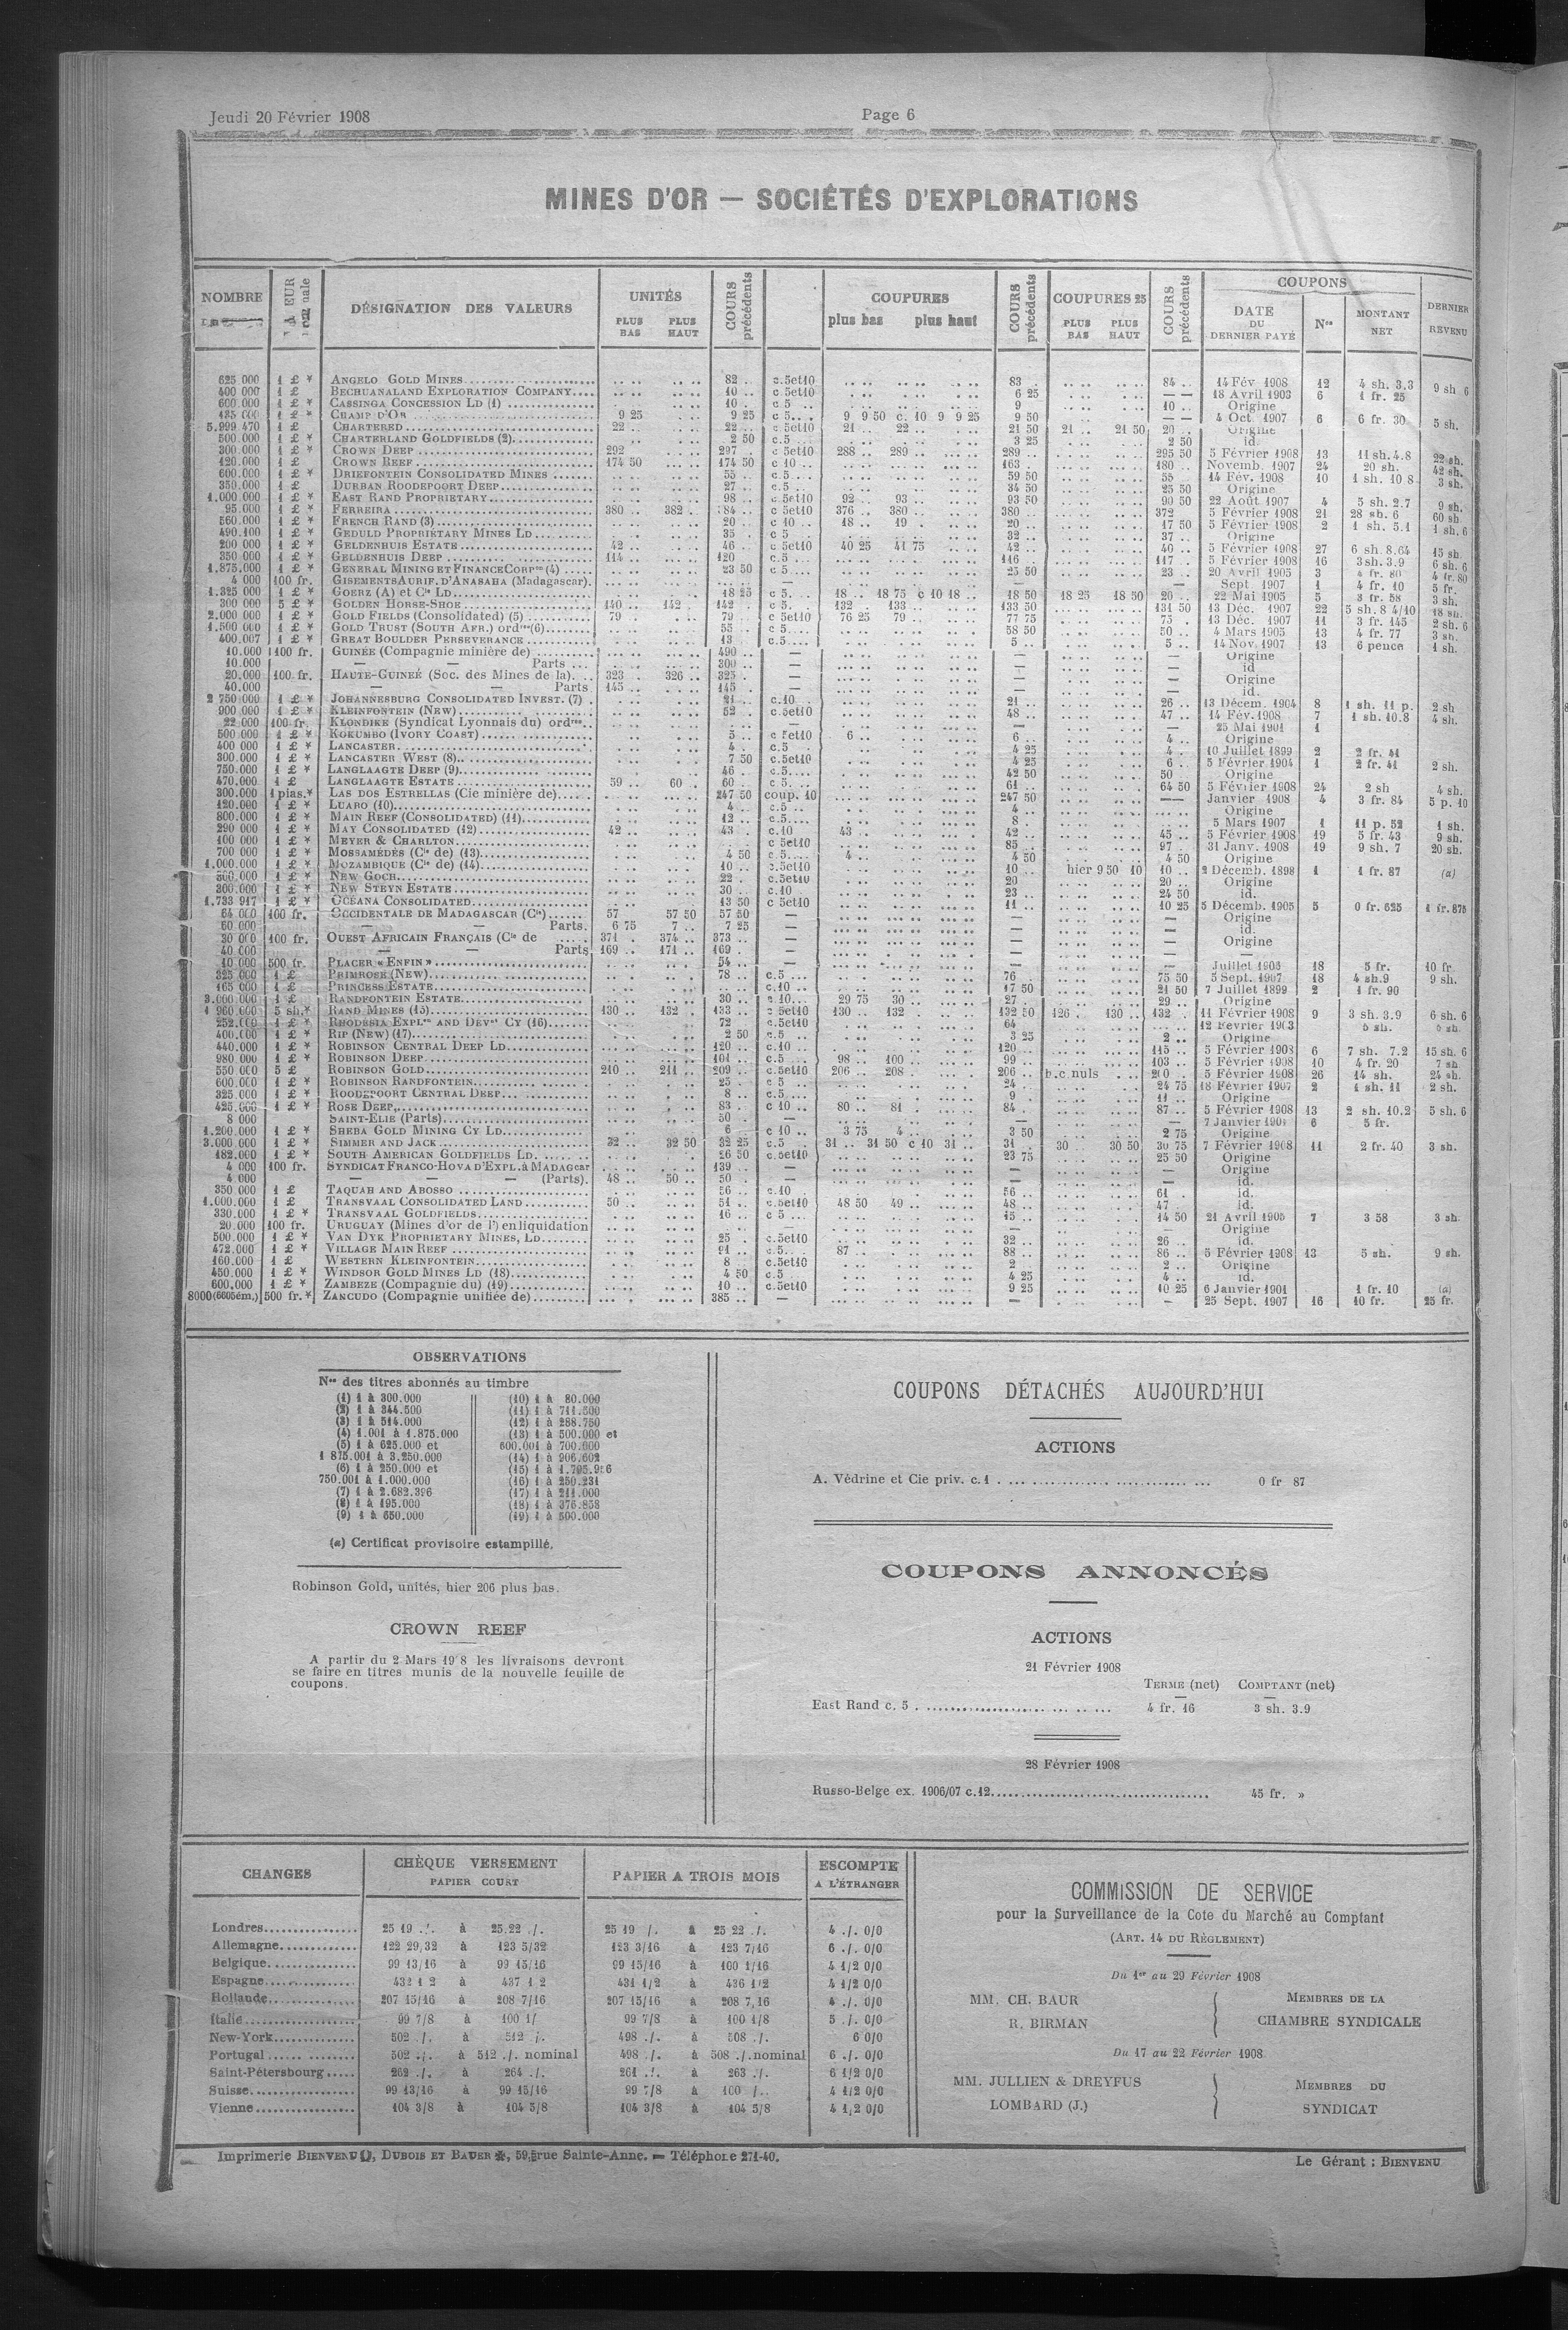 Jeudi 20 Février 1908
Page 6
MINES D'OR — SOCIÉTÉS D'EXPLORATIONS
NOMBRE
DÉSIGNATION DES VALEURS
UNITÉS
PLUS BAS PLUS HAUT
COURS précédents
COUPURES
plus bas plus haut
COURS précédents
COUPURES 25
PLUS BAS PLUS HAUT
COURS précédents
COUPONS
DATE DU DERNIER PAYÉ
Nos
MONTANT NET
DERNIER REVENU
625 000 1 £ * ANGELO GOLD MINES 82 .. c.5et10 83 84 .. 14 Fév 1908 12 4 sh. 3,3
400 000 1 £ BECHUANALAND EXPLORATION COMPANY 10 .. c.5et10 6 25 — — 18 Avril 1903 6 1 fr. 25
600 000 1 £ * CASSINGA CONCESSION LD (1) 10 . c.5 9 10 .. Origine
1 £ * CHAMP D'OR 9 25 9 25 c 5 9 9 50 c. 10 9 9 25 9 50 — — 4 Oct. 1907 6 6 fr. 30 5 sh.
5.999 470 1 £ CHARTERED 22 .. 22 .. c.5et10 21 .. 22 .. 21 50 21 .. 21 50 20 .. Origine
500.000 1 £ * CHARTERLAND GOLDFIELDS (2) 2 50 c.5 3 25 2 50 id.
300.000 1 £ * CROWN DEEP 292 297 . c 5et10 288 .. 289 .. 289 .. 295 50 5 Février 1908 13 11 sh. 4.8 22 sh.
120.000 1 £ CROWN REEF 174 50 174 50 c 10 .. 163 180 .. Novemb. 1907 24 20 sh. 42 sh.
600.000 1 £ * DRIEFONTEIN CONSOLIDATED MINES 55 .. c.5 59 50 55 14 Fév. 1908 10 1 sh. 10 8 3 sh.
350.000 1 £ DURBAN ROODEPOORT DEEP 27 .. c.5 34 50 25 50 Origine
1.000 000 1 £ * EAST RAND PROPRIETARY 98 .. c.5et10 92 .. 93 .. 93 50 90 50 22 Août 1907 4 5 sh. 2.7 9 sh.
95.000 1 £ * FERREIRA 380 .. 382 . c 5et10 376 .. 380 .. 380 .. 372 5 Février 1908 21 28 sh. 6 60 sh
560.000 1 £ * FRENCH RAND (3) 20 . c 10 .. 18 .. 19 . 20 .. 17 50 5 Février 1908 2 1 sh. 5.1 1 sh. 6
490.100 1 £ * GEDULD PROPRIETARY MINES LD 35 c 5 32 .. 37 .. Origine
200 000 1 £ * GELDENHUIS ESTATE 42 .. 46 .. c 5et10 40 25 41 75 42 .. 40 .. 5 Février 1908 27 6 sh. 8.64 15 sh
350 000 1 £ * GELDENHUIS DEEP 114 .. 120 c.5 116 . 117 .. 5 Février 1908 16 3 sh. 3.9 6 sh. 6
1.875.000 1 £ * GENERAL MINING ET FINANCE CORPon (4) 23 50 c 5 25 50 23 .. 20 Avril 1905 3 4 fr. 80
4 000 100 fr. GISEMENTS AURIF. D'ANASAHA (Madagascar). — — — Sept. 1907 1 4 fr. 10 5 fr.
1.325 000 1 £ * GOERZ (A) et Cie LD 18 25 c 5. 18 .. 18 75 c 10 18 .. 18 50 18 25 18 50 20 .. 22 Mai 1905 5 3 fr. 58 3 sh.
300 000 5 £ * GOLDEN HORSE-SHOE 140 .. 142 142 . c 5. 132 . 133 .. 133 50 131 50 13 Déc. 1907 22 5 sh. 8 4/10 18 sh.
2.000 000 1 £ * GOLD FIELDS (Consolidated) (5) 79 .. 79 . c 5et10 76 25 79 .. 77 75 75 . 13 Déc. 1907 11 3 fr. 145 2 sh. 6
1.500 000 1 £ * GOLD TRUST (SOUTH AFR.) ordres (6) 55 .. c 5 58 50 50 .. 4 Mars 1905 13 4 fr. 77 3 sh.
400.007 1 £ * GREAT BOULDER PERSEVERANCE 13 c.5 5 .. 5 .. 14 Nov. 1907 13 6 pence 1 sh.
10.000 100 fr. GUINÉE (Compagnie minière de) 490 .. — — — Origine
10.000 — — Parts 300 .. — — — id
20.000 100 fr. HAUTE-GUINEÉ (Soc. des Mines de la) 323 . 326 .. 325 . — — — Origine
40.000 — — Parts 145 .. 145 . — — — id.
2 750 000 1 £ * JOHANNESBURG CONSOLIDATED INVEST. (7) 21 .. c.10 21 .. 26 .. 13 Décem. 1904 8 1 sh. 11 p. 2 sh
900 000 1 £ * KLEINFONTEIN (NEW) 52 . c.5et10 48 .. 47 .. 14 Fév. 1908 7 1 sh. 10.8 4 sh.
22 000 100 fr. KLONDIKE (Syndicat Lyonnais du) ordres — — — 25 Mai 1901 1
500.000 1 £ * KOKUMBO (IVORY COAST) 5 .. c 5et10 6 .. 6 .. 4 .. Origine
400 000 1 £ * LANCASTER 4 . c.5 4 25 4 .. 10 Juillet 1899 2 2 fr. 41
300.000 1 £ * LANCASTER WEST (8) 7 50 c.5et10 4 25 6 .. 5 Février 1904 1 2 fr. 41 2 sh.
750.000 1 £ * LANGLAAGTE DEEP (9) 46 . c.5 42 50 50 Origine
470.000 1 £ LANGLAAGTE ESTATE 59 .. 60 . 60 .. c 5 61 .. 64 50 5 Février 1908 24 2 sh 4 sh.
300.000 1 pias.* LAS DOS ESTRELLAS (Cie minière de) 247 50 coup. 10 247 50 — — Janvier 1908 4 3 fr. 84 5 p. 10
120.000 1 £ * LUABO (10) 4 .. c.5 4 .. Origine
800.000 1 £ * MAIN REEF (CONSOLIDATED) (11) 12 .. c.5 8 . 5 Mars 1907 1 11 p. 52 1 sh.
290 000 1 £ * MAY CONSOLIDATED (12) 42 .. 43 . c.10 43 .. 42 .. 45 .. 5 Février 1908 19 5 fr. 43 9 sh.
100 000 1 £ * MEYER & CHARLTON c 5et10 85 .. 97 .. 31 Janv. 1908 19 9 sh. 7 20 sh.
700 000 1 £ * MOSSAMÉDÈS (Cie de) (13) 4 50 c.5 4 .. 4 50 4 50 Origine
1.000.000 1 £ * MOZAMBIQUE (Cie de) (14) 10 .. c.5et10 10 .. hier 9 50 10 10 .. 2 Décemb. 1898 1 1 fr. 87 (a)
1 £ * NEW GOCH 22 .. c.5et10 20 20 .. Origine
300.000 1 £ * NEW STEYN ESTATE 30 .. c.10 23 .. 24 50 id.
1.733 917 1 £ * OCEANA CONSOLIDATED 13 50 c 5et10 11 .. 10 25 5 Décemb. 1905 5 0 fr. 625 1 fr. 875
64 000 100 fr. OCCIDENTALE DE MADAGASCAR (Cie) 57 57 50 57 50 — — — Origine
60.000 — — Parts. 6 75 7 .. 7 25 — — — id.
30 000 100 fr. OUEST AFRICAIN FRANÇAIS (Cie de 371 . 374 .. 373 .. — — — Origine
40.000 — — Parts 169 .. 171 .. 169 . — — — —
10 000 500 fr. PLACER « ENFIN » 54 .. — — — Juillet 1905 18 5 fr. 10 fr.
325 000 1 £ PRIMROSE (NEW) 78 .. c.5 76 75 50 5 Sept. 1907 18 4 sh.9 9 sh.
165 000 1 £ PRINCESS ESTATE c.10 .. 17 50 21 50 7 Juillet 1899 2 1 fr. 90
3.000 000 1 £ RANDFONTEIN ESTATE 30 .. c.10 29 75 30 .. 27 . 29 .. Origine
1 960 000 5 sh.* RAND MINES (15) 130 .. 132 . 133 .. c 5et10 130 .. 132 .. 132 50 126 . 130 .. 132 . 11 Février 1908 9 3 sh. 3.9 6 sh. 6
1 £ * RHODESIA EXPLon AND DEVnt CY (16) 72 c.5et10 64 12 Février 1903 5 sh.
400.000 1 £ * RIP (NEW) (17) 2 50 c.5 3 25 2 .. Origine
440.000 1 £ * ROBINSON CENTRAL DEEP LD 120 .. c.10 .. 120 .. 115 .. 5 Février 1908 6 7 sh. 7.2 15 sh. 6
980 000 1 £ * ROBINSON DEEP 101 .. c.5 98 .. 100 99 .. 103 .. 5 Février 1908 10 4 fr. 20 7 sh
550 000 5 £ ROBINSON GOLD 210 .. 211 .. 209 .. c.5et10 206 .. 208 .. 206 .. b.c.nuls 5 Février 1908 26 14 sh. 24 sh.
600.000 1 £ * ROBINSON RANDFONTEIN 25 . c 5 24 . 24 75 18 Février 1907 2 1 sh. 11 2 sh.
325.000 1 £ * ROODEPOORT CENTRAL DEEP 8 .. c.5 9 . 11 .. Origine
425.000 1 £ * ROSE DEEP 83 .. c 10 .. 80 .. 81 . 84 . 87 .. 5 Février 1908 13 2 sh. 10.2 5 sh. 6
8 000 SAINT-ELIE (Parts) 50 .. — — — 7 Janvier 1901 6 5 fr.
1.200.000 1 £ * SHEBA GOLD MINING CY LD 6 c 10 .. 3 75 4 .. 3 50 2 75 Origine
3.000 000 1 £ * SIMMER AND JACK 32 .. 32 50 32 25 c.5 31 .. 31 50 c 10 31 .. 31 . 30 30 50 30 75 7 Février 1908 11 2 fr. 40 3 sh.
182.000 1 £ * SOUTH AMERICAN GOLDFIELDS LD. 26 50 c.5et10 23 75 25 50 Origine
4 000 100 fr. SYNDICAT FRANCO-HOVA D'EXPL. à MADAGcar 139 .. — — — Origine
4.000 — — — (Parts). 48 .. 50 .. 50 . — — — id.
350 000 1 £ TAQUAH AND ABOSSO 56 .. c.10 56 .. 61 . id.
1.000.000 1 £ TRANSVAAL CONSOLIDATED LAND 50 .. 51 .. c.5et10 48 50 49 .. 48 .. 47 . id.
330.000 1 £ * TRANSVAAL GOLDFIELDS 16 .. c 5 15 .. 14 50 21 Avril 1905 7 3 58 3 sh
20.000 100 fr. URUGUAY (Mines d'or de l') en liquidation — — Origine
500.000 1 £ * VAN DYK PROPRIETARY MINES, LD 25 . c.5et10 32 .. 26 .. id.
472.000 1 £ * VILLAGE MAIN REEF 91 .. c.5 87 .. 88 .. 86 .. 5 Février 1908 13 5 sh. 9 sh.
160.000 1 £ WESTERN KLEINFONTEIN 8 c.5et10 2 2 .. Origine
450.000 1 £ * WINDSOR GOLD MINES LD (18) 4 50 c.5 4 25 4 .. id.
600.000 1 £ * ZAMBEZE (Compagnie du) (19) 10 .. c.5et10 9 25 10 25 6 Janvier 1901 1 fr. 10 (a)
500 fr.* ZANCUDO (Compagnie unifiée de) 385 .. — — — 25 Sept. 1907 16 10 fr. 25 fr.
OBSERVATIONS
Nos des titres abonnés au timbre
(1) 1 à 300.000
(2) 1 à 344.500
(3) 1 à 514.000
(4) 1.001 à 1.875.000
(5) 1 à 625.000 et
1 875.001 à 3.250.000
(6) 1 à 250.000 et
750.001 à 1.000.000
(7) 1 à 2.682.396
(8) 1 à 195.000
(9) 1 à 650.000
(10) 1 à 80.000
(11) 1 à 711.500
(12) 1 à 288.750
(13) 1 à 500.000 et
600.001 à 700.000
(14) 1 à 906.602
(15) 1 à 1.795.956
(16) 1 à 250.231
(17) 1 à 211.000
(18) 1 à 376.858
(19) 1 à 500.000
(a) Certificat provisoire estampillé.
Robinson Gold, unités, hier 206 plus bas.
CROWN REEF
A partir du 2 Mars 19 8 les livraisons devront
se faire en titres munis de la nouvelle feuille de
coupons.
COUPONS DÉTACHÉS AUJOURD'HUI
ACTIONS
A. Védrine et Cie priv. c.1 0 fr 87
COUPONS ANNONCÉS
ACTIONS
21 Février 1908
TERME (net) COMPTANT (net)
East Rand c. 5 4 fr. 16 3 sh. 3.9
28 Février 1908
Russo-Belge ex. 1906/07 c.12 45 fr. »
CHANGES
CHÈQUE VERSEMENT
PAPIER COURT
PAPIER A TROIS MOIS
ESCOMPTE
A L'ÉTRANGER
Londres 25 19 ./. à 25.22 ./. 25 19 /. à 25 22 ./. 4 ./. 0/0
Allemagne 122 29,32 à 123 5/32 123 3/16 à 123 7/16 6 ./. 0/0
Belgique 99 13/16 à 99 15/16 99 15/16 à 100 1/16 4 1/2 0/0
Espagne 432 1 2 à 437 1 2 431 1/2 à 436 1/2 4 1/2 0/0
Hollande 207 15/16 à 208 7/16 207 15/16 à 208 7,16 4 ./. 0/0
Italie 99 7/8 à 100 1/ 99 7/8 à 100 1/8 5 ./. 0/0
New-York 502 ./. à 512 /. 498 ./. à 508 ./. 6 0/0
Portugal 502 ./. à 512 ./. nominal 498 ./. à 508 ./. nominal 6 ./. 0/0
Saint-Pétersbourg 262 ./. à 264 ./. 261 ./. à 263 ./. 6 1/2 0/0
Suisse 99 13/16 à 99 15/16 99 7/8 à 100 /. 4 1/2 0/0
Vienne 104 3/8 à 104 5/8 104 3/8 à 104 5/8 4 1,2 0/0
COMMISSION DE SERVICE
pour la Surveillance de la Cote du Marché au Comptant
(ART. 14 DU RÈGLEMENT)
Du 1er au 29 Février 1908
MM. CH. BAUR
R. BIRMAN
MEMBRES DE LA
CHAMBRE SYNDICALE
Du 17 au 22 Février 1908
MM. JULLIEN & DREYFUS
LOMBARD (J.)
MEMBRES DU
SYNDICAT
Imprimerie BIENVENU, DUBOIS ET BAUER, 59, rue Sainte-Anne. — Téléphone 271-40.
Le Gérant : BIENVENU